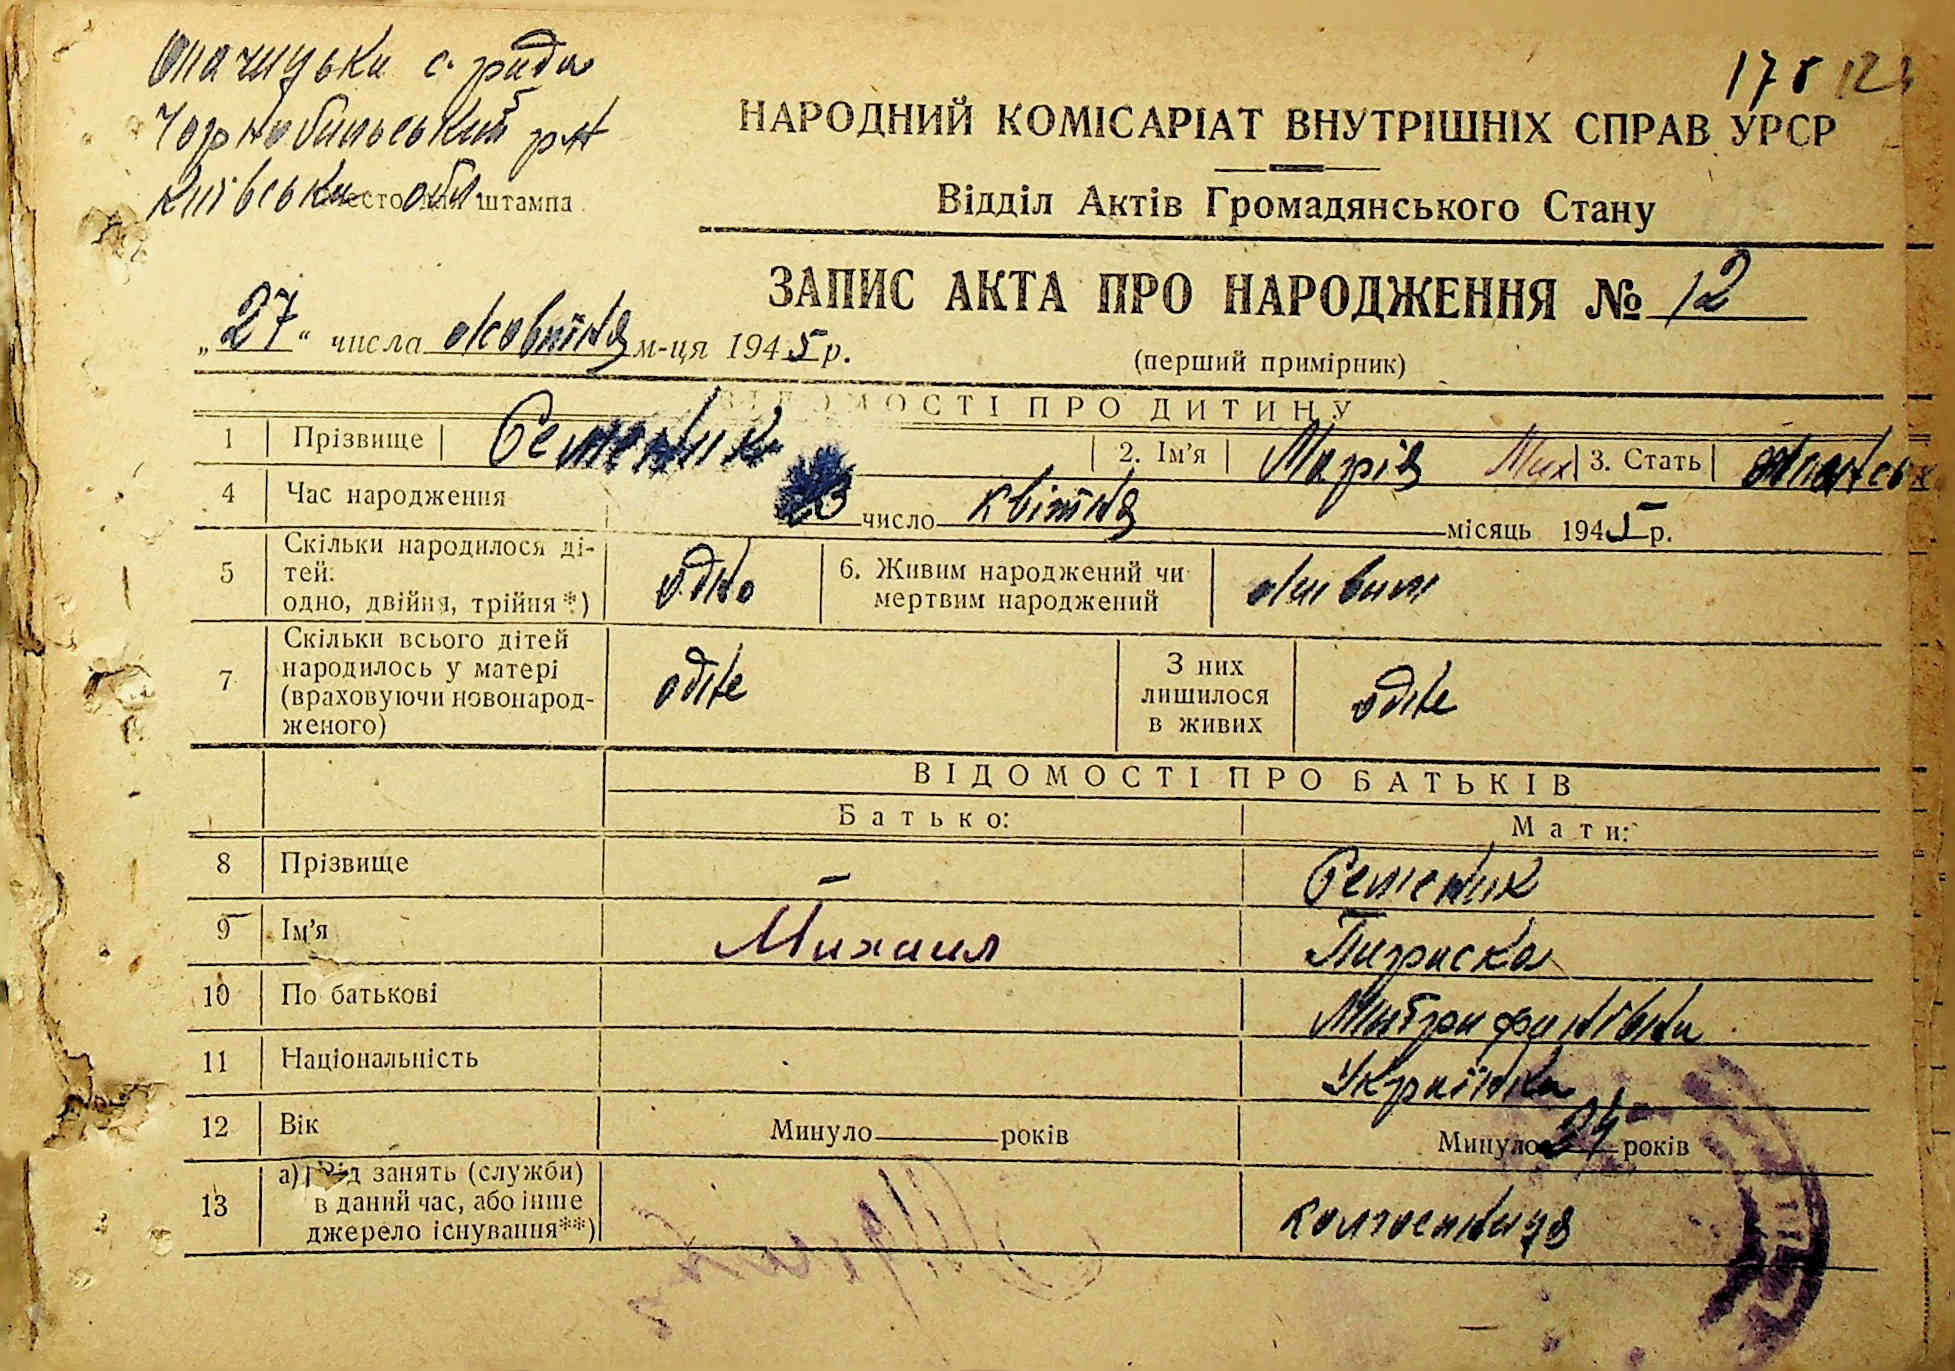 Опачицька с. рада
178 12
Чорнобильський р-н
НАРОДНИЙ КОМІСАРІАТ ВНУТРІШНІХ СПРАВ УРСР
Київська обл
штампа
Відділ Актів Громадянського Стану
ЗАПИС АКТА ПРО НАРОДЖЕННЯ № 12
„27“ числа жовтня м-ця 1945 р.
(перший примірник)
ВІДОМОСТІ ПРО ДИТИНУ
1 Прізвище Семеник 2. Ім'я Марія Мих 3. Стать жіноч
4 Час народження число квітня місяць 1945 р.
5 Скільки народилося ді-
тей:
одно, двійня, трійня*) одно
6. Живим народжений чи
мертвим народжений живим
7 Скільки всього дітей
народилось у матері
(враховуючи новонарод-
женого) одне
З них
лишилося
в живих одне
ВІДОМОСТІ ПРО БАТЬКІВ
Батько: Мати:
8 Прізвище — Семеник
9 Ім'я Михаил Париска
10 По батькові Митрофанівна
11 Національність Українка
12 Вік Минуло років Минуло 24 років
13 а) Рід занять (служби)
в даний час, або інше
джерело існування**) колгоспниця